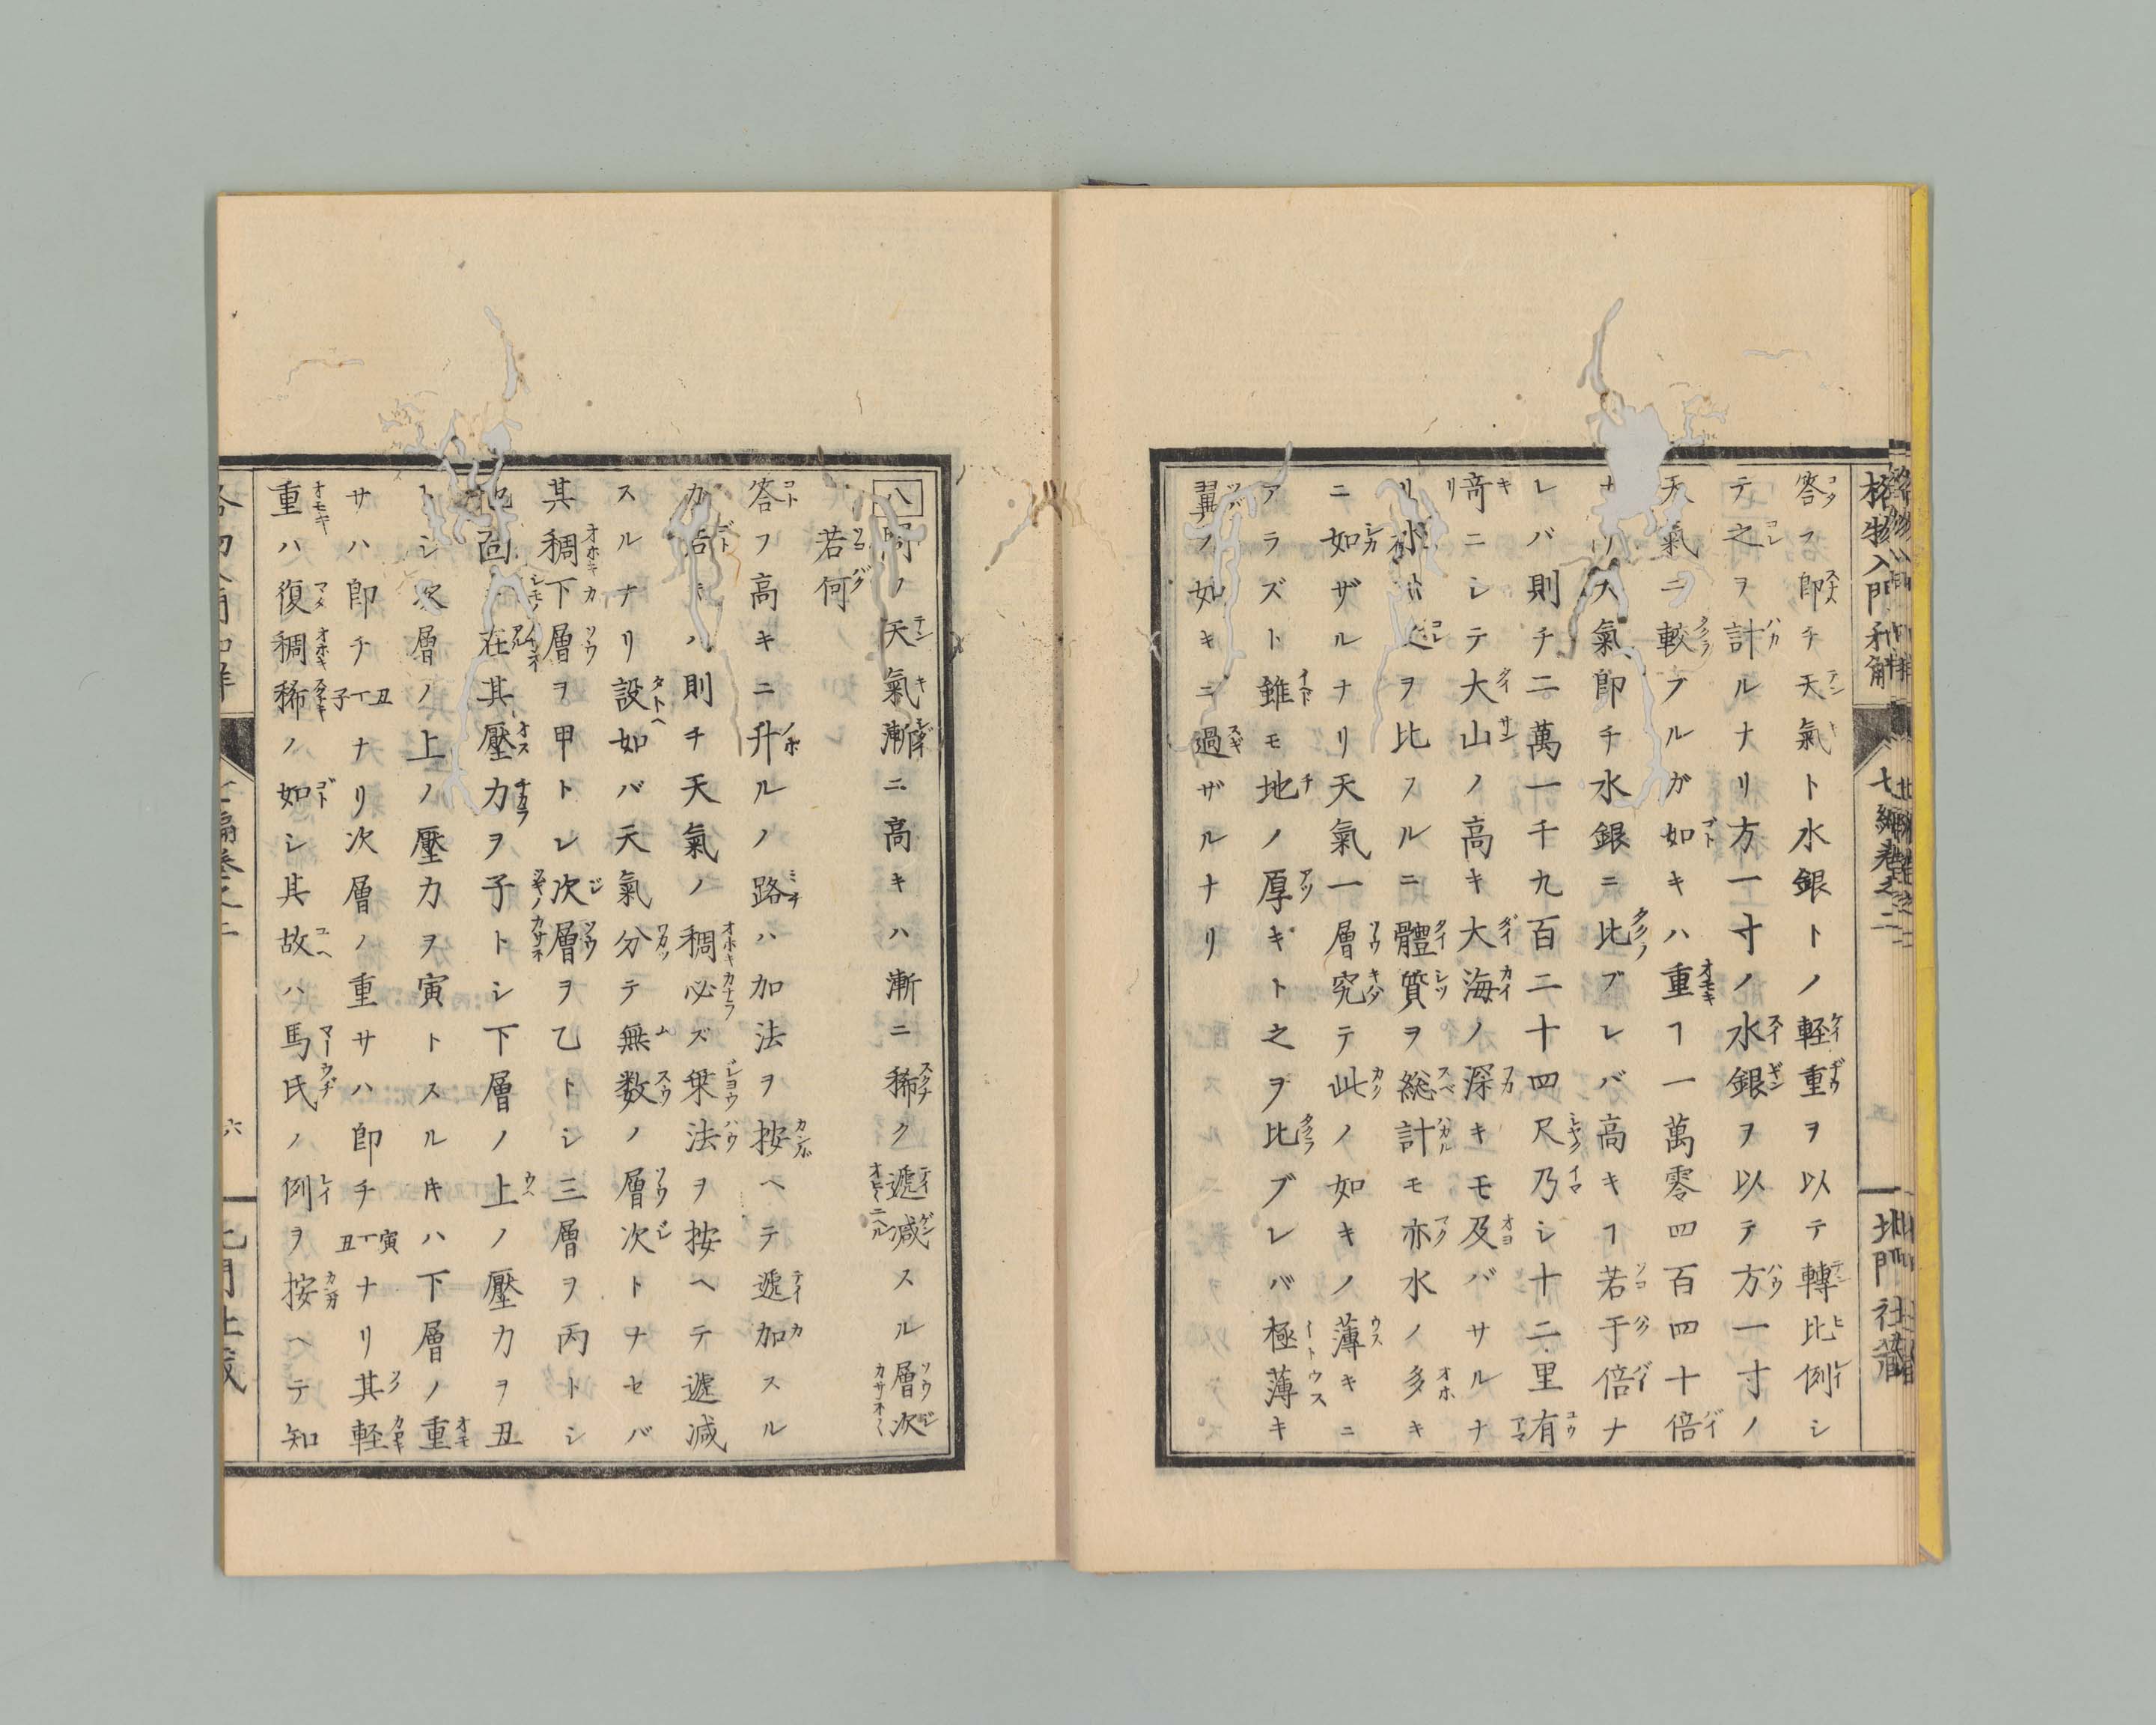 格物入門和解
七編巻之二
北門社藏
答フ即チ天氣ト水銀トノ軽重ヲ以テ轉比例シ
テ之ヲ計ルナリ方一寸ノ水銀ヲ以テ方一寸ノ
天氣ニ較ブルガ如キハ重キヿ一萬零四百四十倍
大氣即チ水銀ニ比ブレバ高キヿ若干倍ナ
レバ則チ二萬一千九百二十四尺乃シ十二里有
奇ニシテ大山ノ高キ大海ノ深キモ及バサルナ
リ水ヲ比スルニ體質ヲ総計モ亦水ノ多キ
ニ如ザルナリ天氣一層究テ此ノ如キノ薄キニ
アラズト雖モ地ノ厚キト之ヲ比ブレバ極薄キ
翼ノ如キニ過ザルナリ
八 問ノ天氣漸ニ高キハ漸ニ稀ク遞減スル層次
若何
答フ高キニ升ルノ路ハ加法ヲ按ヘテ遞加スル
カ若キハ則チ天氣ノ稠必ズ乗法ヲ按ヘテ遞減
スルナリ設如バ天氣分テ無数ノ層次トナセバ
其稠下層ヲ甲トシ次層ヲ乙トシ三層ヲ丙トシ
在其壓力ヲ子トシ下層ノ上ノ壓力ヲ丑
トシ次層ノ上ノ壓力ヲ寅トスルキハ下層ノ重
サハ即チ子丅丑ナリ次層ノ重サハ即チ丑丅寅ナリ其軽
重ハ復稠稀ノ如シ其故ハ馬氏ノ例ヲ按ヘテ知
六